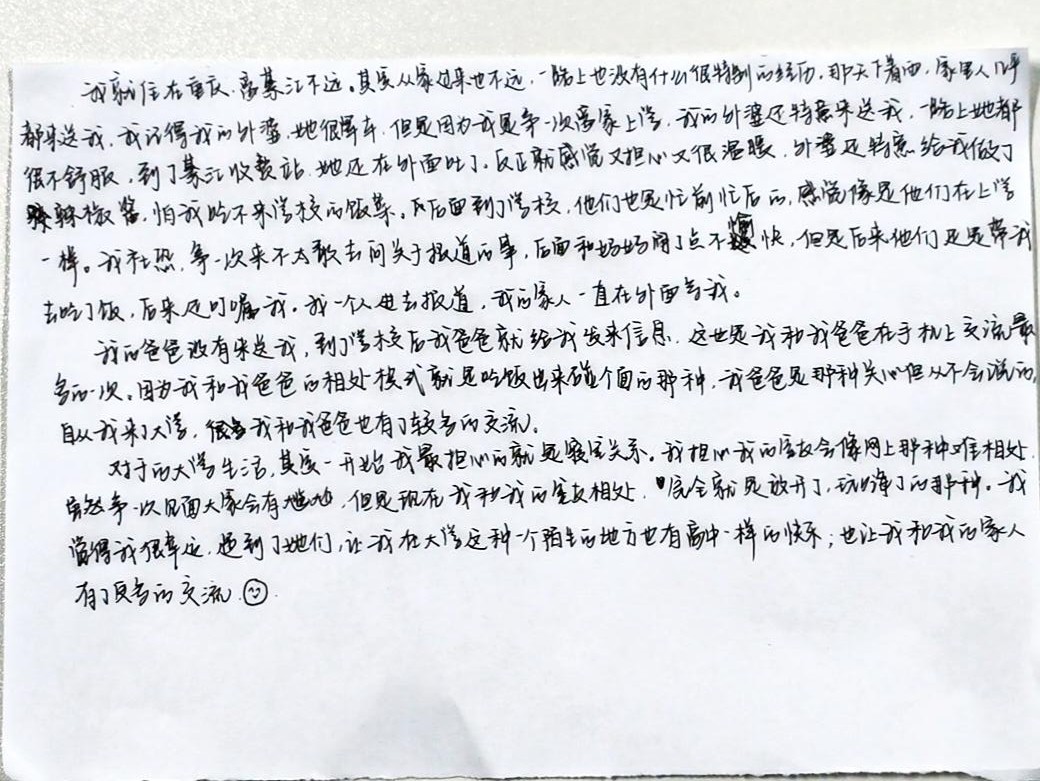 我就住在重庆，离綦江不远。其实从家过来也不远，一路上也没有什么很特别的经历，那天下着雨，家里人几乎
都来送我，我记得我的外婆，她很晕车，但是因为我是第一次离家上学，我的外婆还特意来送我，一路上她都
很不舒服，到了綦江收费站，她还在外面吐了，反正就感觉又担心又很温暖，外婆还特意给我做了
辣椒酱，怕我吃不来学校的饭菜。后面到了学校，他们也是忙前忙后的，感觉像是他们在上学
一样。我社恐，第一次来不太敢去问关于报道的事，后面和妈妈闹了点不愉快，但是后来他们还是带我
去吃了饭，后来还叮嘱我。我一个人进去报道，我的家人一直在外面等我。
我的爸爸没有来送我，到了学校后我爸爸就给我发来信息，这也是我和我爸爸在手机上交流最
多的一次。因为我和我爸爸的相处模式就是吃饭出来碰个面的那种，我爸爸是那种关心但从不会说的，
自从我来了大学，我和我爸爸也有了较多的交流。
对于的大学生活，其实一开始我最担心的就是寝室关系。我担心我的室友会像网上那种难相处，
虽然第一次见面大家会有尴尬，但是现在我和我的室友相处，完全就是放开了，玩的那种。我
觉得我很幸运，遇到了她们，让我在大学这种一个陌生的地方也有高中一样的快乐；也让我和我的家人
有了更多的交流